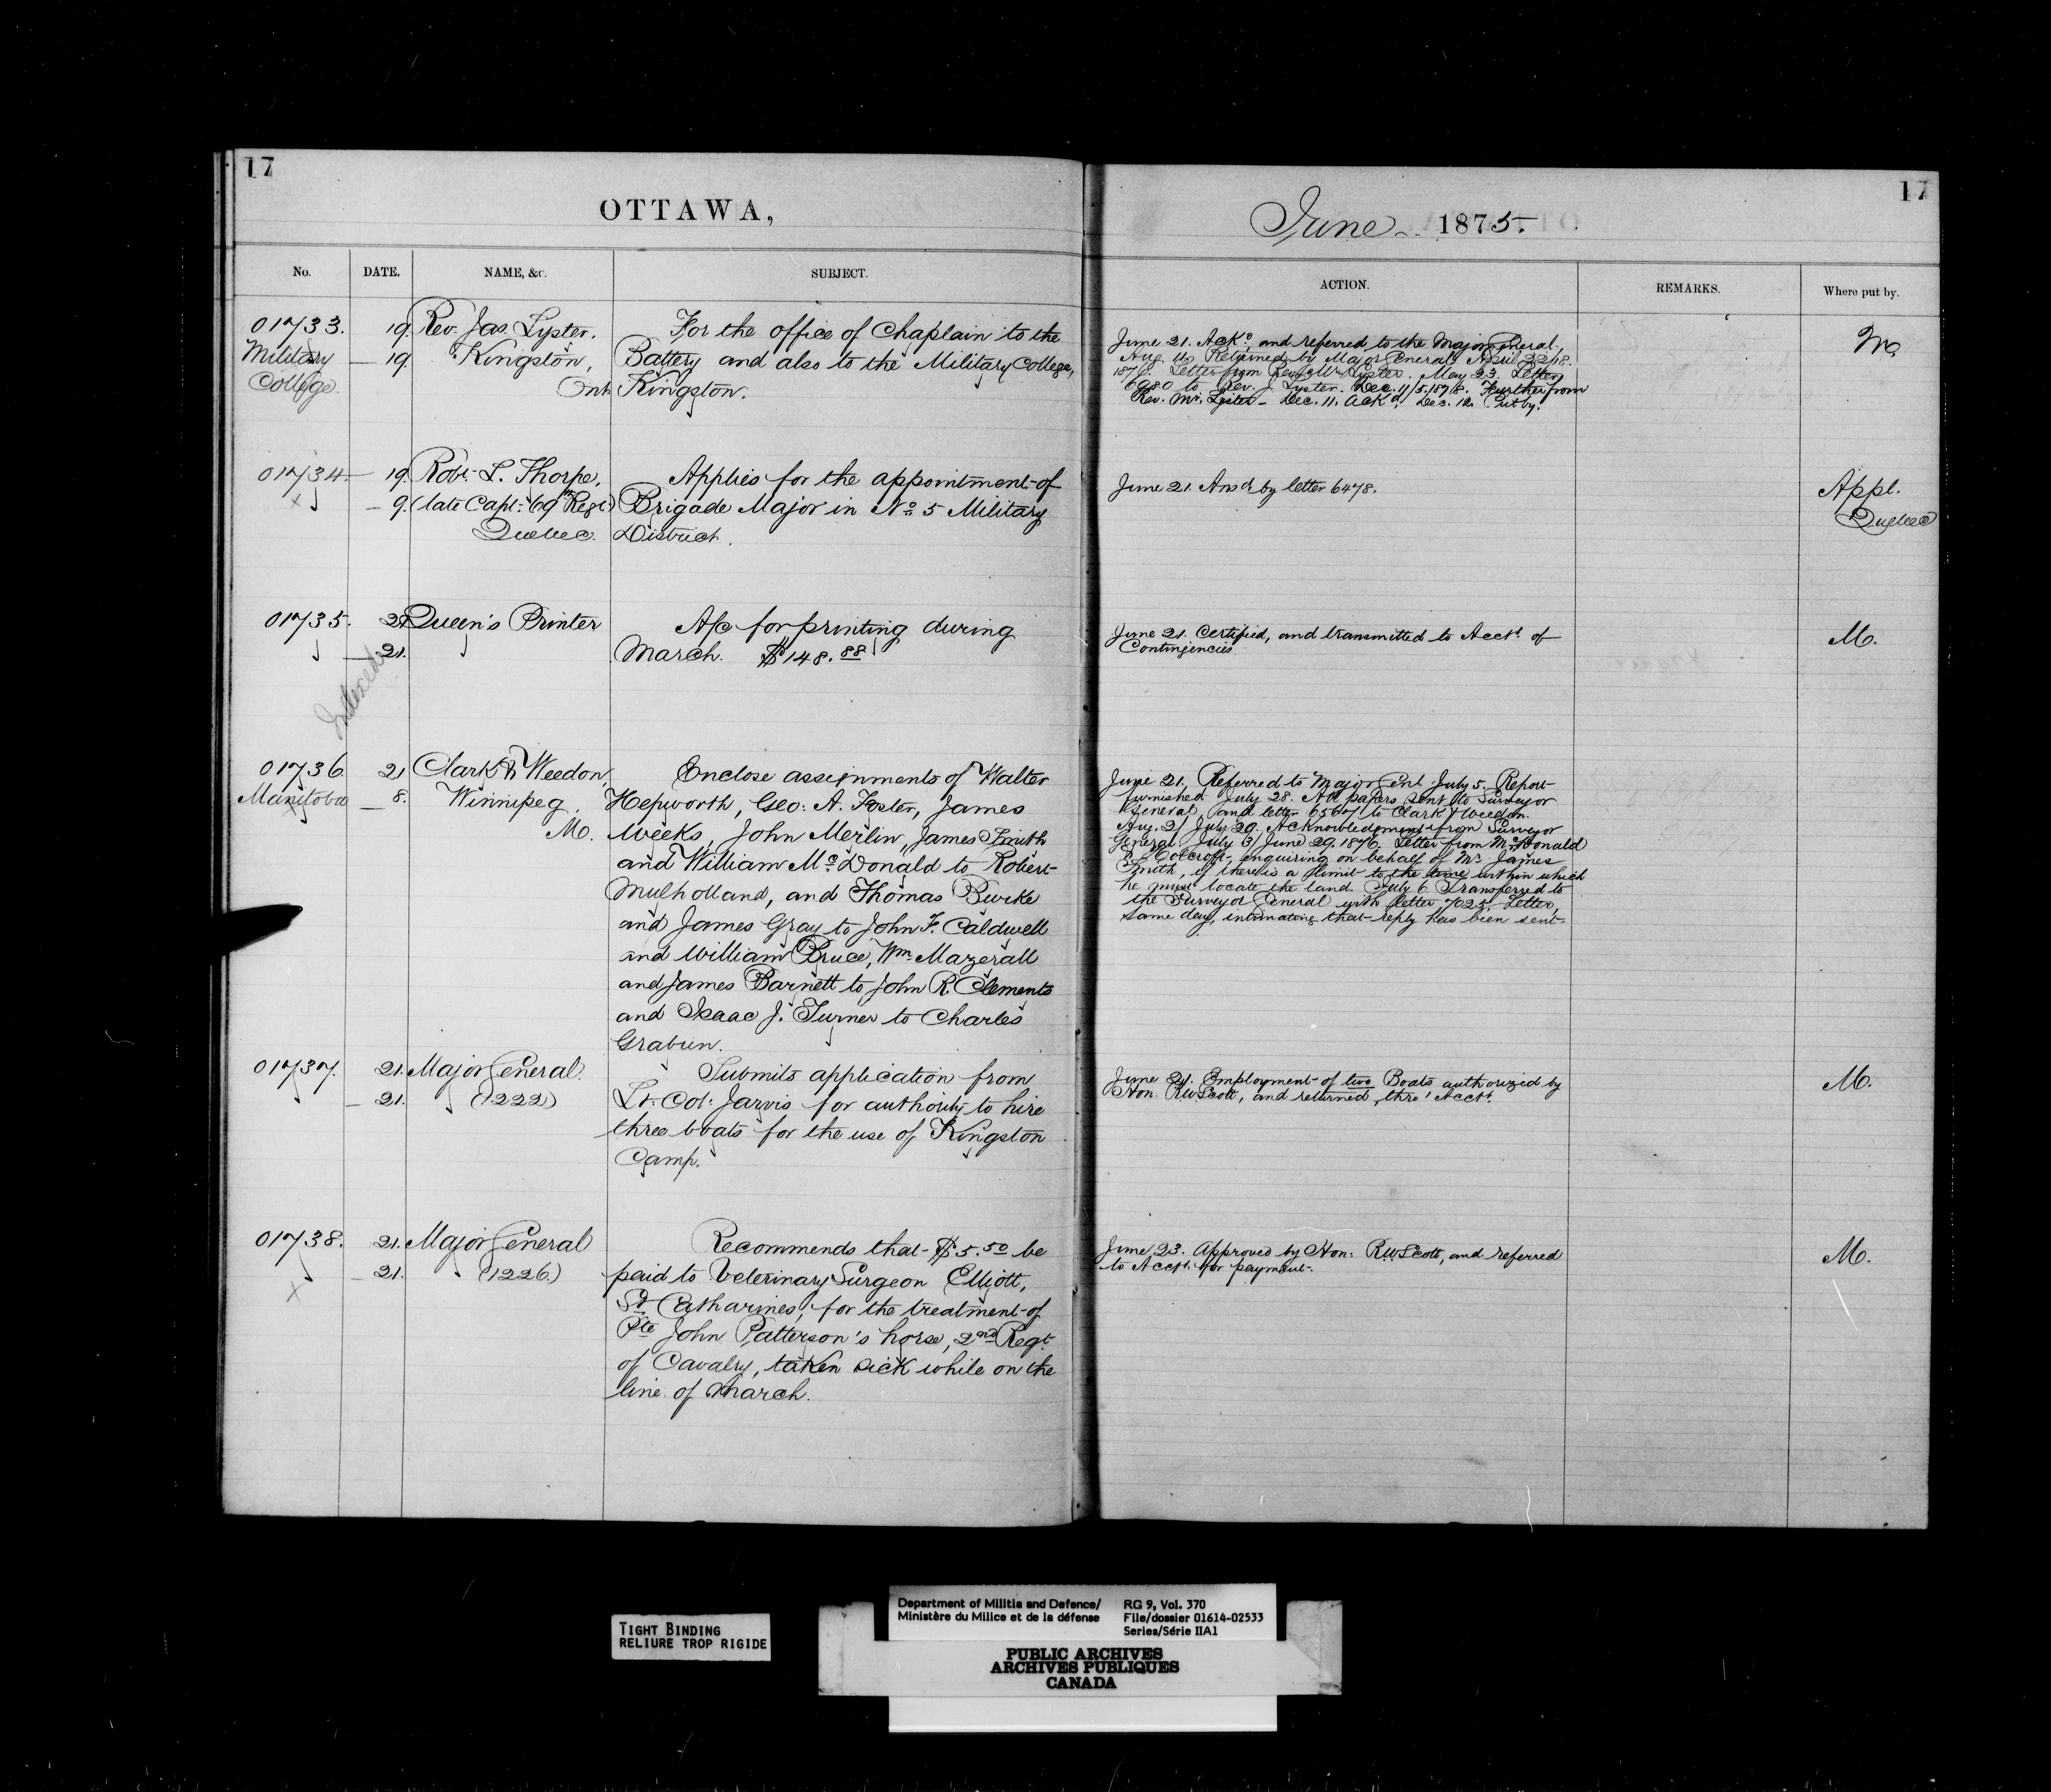 17
OTTAWA,
No. DATE. NAME, &c. SUBJECT.
01733. 19. Rev. Jas. Lyster. For the office of Chaplain to the
Military — 19. Kingston, Battery and also to the Military College,
College. Ont. Kingston.
01734 — 19. Robt. L. Thorpe, Applies for the appointment of
— 9. (late Capt: 69th Regt) Brigade Major in No. 5 Military
Quebec. District.
01735. 21. Queen's Printer A/c for printing during
— 21. March. $148.88
Indexed
01736. 21 Clark & Weedon, Enclose assignments of Walter
Manitoba — 8. Winnipeg, Hepworth, Geo: A. Foster, James
M. Weeks, John Merlin, James Smith
and William McDonald to Robert
Mulholland, and Thomas Burke
and James Gray to John F. Caldwell
and William Bruce, Wm. Mazerall
and James Barnett to John R. Clements
and Isaac J. Turner to Charles
Graburn.
01737. 21. Major General. Submits application from
— 21. (1222) Lt. Col: Jarvis, for authority to hire
three boats for the use of Kingston
Camp.
01738. 21. Major General Recommends that $5.50 be
— 21. (1226) paid to Veterinary Surgeon Elliott,
St. Catharines, for the treatment of
Pte John Patterson's horse, 2nd Regt.
of Cavalry, taken sick while on the
line of march.
17
June 1875.
ACTION. REMARKS. Where put by.
June 21. Ackd, and referred to the Major General, M.
Aug. Returned by Major General. April 22/18.
187 . Letter from Revd. Mr. Lyster. May 23. Letter
6980 to Rev. J. Lyster. Dec. 11/5, 1876. Further from
Rev. Mr. Lyster — Dec. 11. Ackd. Dec. 12. Put by.
June 21. Ansd by letter 6478. Appl.
Quebec
June 21. Certified, and transmitted to Acct. of M.
Contingencies
June 21. Referred to Major Genl. July 5. Report
furnished July 28. All papers sent to Surveyor
General, and letter 6567 to Clark & Weedon.
Aug. 2/ July 29. Acknowledgment from Surveyor
General. July 3/ June 29. 1876. Letter from McDonald
& Holcroft, enquiring on behalf of Mr. James
Smith, if there is a limit to the time within which
he must locate the land. July 6. Transferred to
the Surveyor General with letter 7025. Letter,
same day, intimating that reply has been sent.
June 21. Employment of two Boats authorized by M.
Hon. RWScott, and returned, thro' Acct.
June 23. Approved by Hon: RWScott, and referred M.
to Acct. for payment.
TIGHT BINDING
RELIURE TROP RIGIDE
Department of Militia and Defence/ RG 9, Vol. 370
Ministère du Milice et de la défense File/dossier 01614-02533
Series/Série IIA1
PUBLIC ARCHIVES
ARCHIVES PUBLIQUES
CANADA